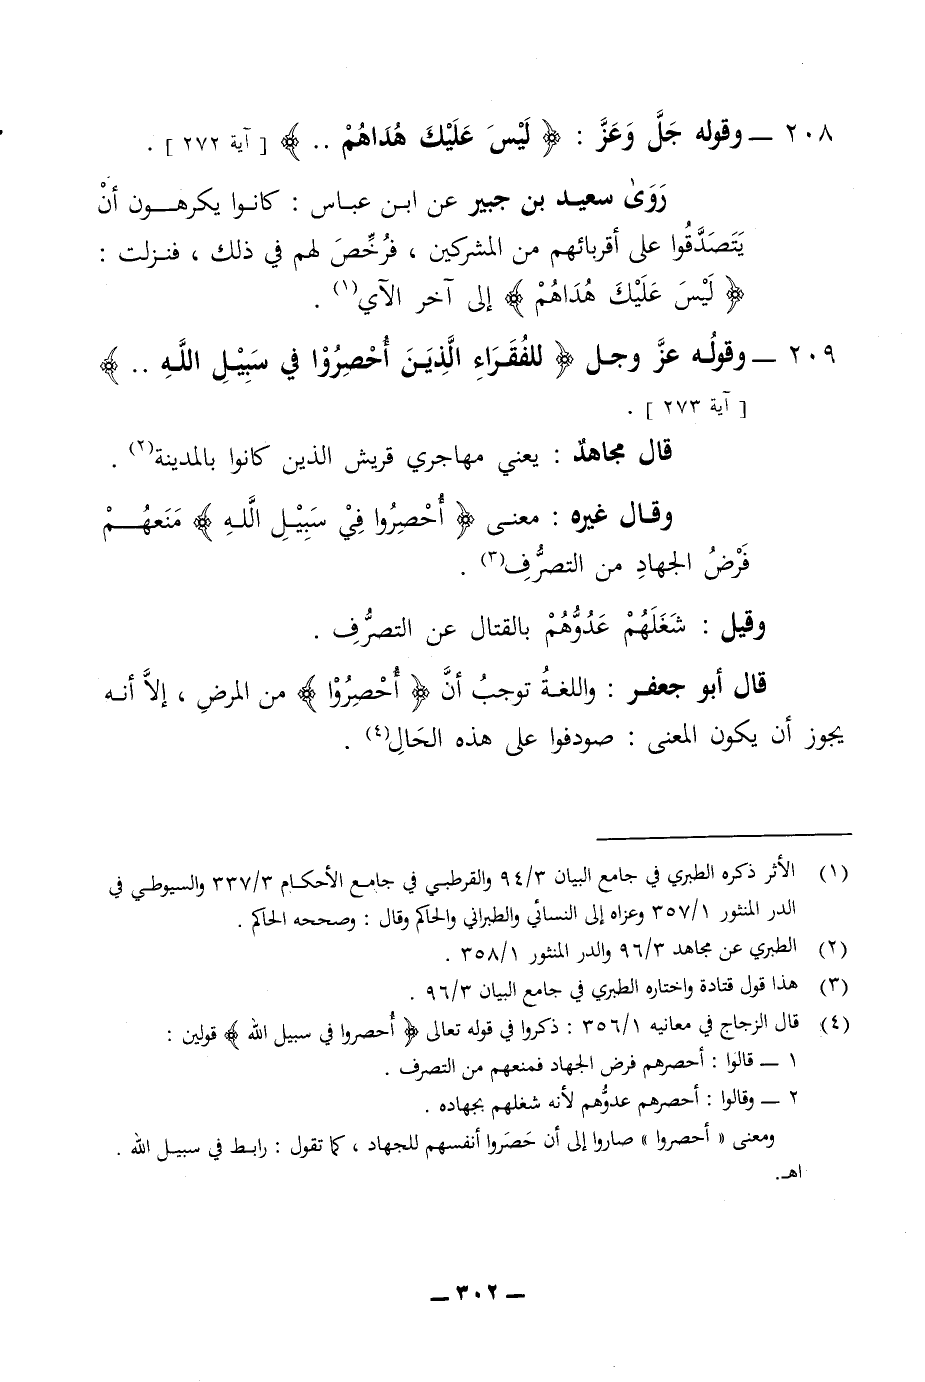 ٢٠٨ ــ وقوله جَلَّ وَعَزَّ : ﴿ لَيْسَ عَلَيْكَ هُدَاهُمْ .. ﴾ [ آية ٢٧٢ ] .
رَوَىٰ سعيد بن جبير عن ابن عباس : كانوا يكرهون أنْ
يَتَصَدَّقُوا على أقربائهم من المشركين ، فرُخِّصَ لهم في ذلك ، فنزلت :
﴿ لَيْسَ عَلَيْكَ هُدَاهُمْ ﴾ إلى آخر الآي(١) .
٢٠٩ ــ وقولُه عزَّ وجل ﴿ للفُقَرَاءِ الَّذِيَنَ أُحْصِرُوْا في سَبِيْلِ اللَّهِ .. ﴾
[ آية ٢٧٣ ] .
قال مجاهدٌ : يعني مهاجري قريش الذين كانوا بالمدينة(٢) .
وقال غيره : معنى ﴿ أُحْصِرُوا فِيْ سَبِيْلِ الَّلهِ ﴾ مَنَعهُمْ
فَرْضُ الجهادِ من التصرُّفِ(٣) .
وقيل : شَغَلَهُمْ عَدُوُّهُمْ بالقتال عن التصرُّفِ .
قال أبو جعفر : واللغةُ توجبُ أنَّ ﴿ أُحْصِرُوْا ﴾ من المرضِ ، إلاَّ أنه
يجوز أن يكون المعنى : صودفوا على هذه الحَالِ(٤) .
(١) الأثر ذكره الطبري في جامع البيان ٩٤/٣ والقرطبي في جامع الأحكام ٣٣٧/٣ والسيوطي في
الدر المنثور ٣٥٧/١ وعزاه إلى النسائي والطبراني والحاكم وقال : وصححه الحاكم .
(٢) الطبري عن مجاهد ٩٦/٣ والدر المنثور ٣٥٨/١ .
(٣) هذا قول قتادة واختاره الطبري في جامع البيان ٩٦/٣ .
(٤) قال الزجاج في معانيه ٣٥٦/١ : ذكروا في قوله تعالى ﴿ أُحصروا في سبيل الله ﴾ قولين :
١ ــ قالوا : أحصرهم فرض الجهاد فمنعهم من التصرف .
٢ ــ وقالوا : أحصرهم عدوُّهم لأنه شغلهم بجهاده .
ومعنى « أحصروا » صاروا إلى أن حَصَروا أنفسهم للجهاد ، كما تقول : رابط في سبيل الله .
اهـ.
ــ ٣٠٢ ــ